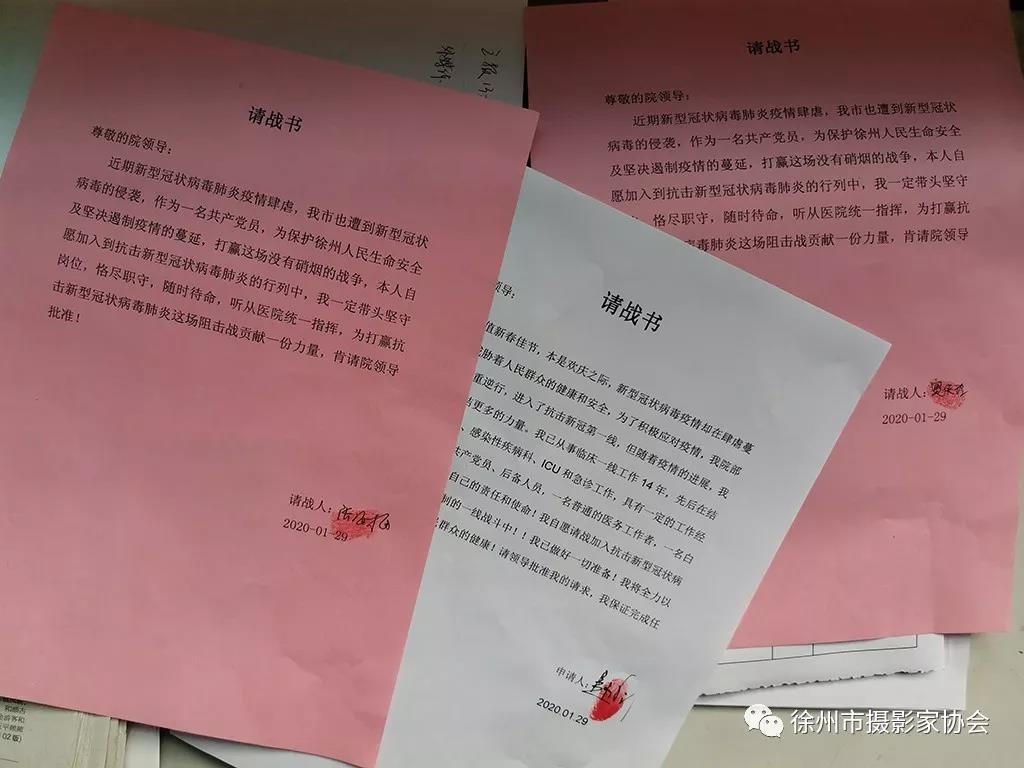 请战书
尊敬的院领导：
近期新型冠状病毒肺炎疫情肆虐，我市也遭到新型冠状
病毒的侵袭，作为一名共产党员，为保护徐州人民生命安全
及坚决遏制疫情的蔓延，打赢这场没有硝烟的战争，本人自
愿加入到抗击新型冠状病毒肺炎的行列中，我一定带头坚守
岗位，恪尽职守，随时待命，听从医院统一指挥，为打赢抗
击新型冠状病毒肺炎这场阻击战贡献一份力量，肯请院领导
批准！
请战人：
2020-01-29
请战书
领导：
值新春佳节，本是欢庆之际，新型冠状病毒疫情却在肆虐蔓
胁着人民群众的健康和安全，为了积极应对疫情，我院部
重逆行，进入了抗击新冠第一线，但随着疫情的进展，我
更多的力量。我已从事临床一线工作14年，先后在结
、感染性疾病科、ICU和急诊工作，具有一定的工作经
共产党员、后备人员，一名普通的医务工作者，一名白
自己的责任和使命！我自愿请战加入抗击新型冠状病
的一线战斗中！！我已做好一切准备！我将全力以
群众的健康！请领导批准我的请求，我保证完成任
申请人：
2020.01.29
请战书
尊敬的院领导：
近期新型冠状病毒肺炎疫情肆虐，我市也遭到新型冠状
病毒的侵袭，作为一名共产党员，为保护徐州人民生命安全
及坚决遏制疫情的蔓延，打赢这场没有硝烟的战争，本人自
愿加入到抗击新型冠状病毒肺炎的行列中，我一定带头坚守
恪尽职守，随时待命，听从医院统一指挥，为打赢抗
病毒肺炎这场阻击战贡献一份力量，肯请院领导
请战人：
2020-01-29
徐州市摄影家协会